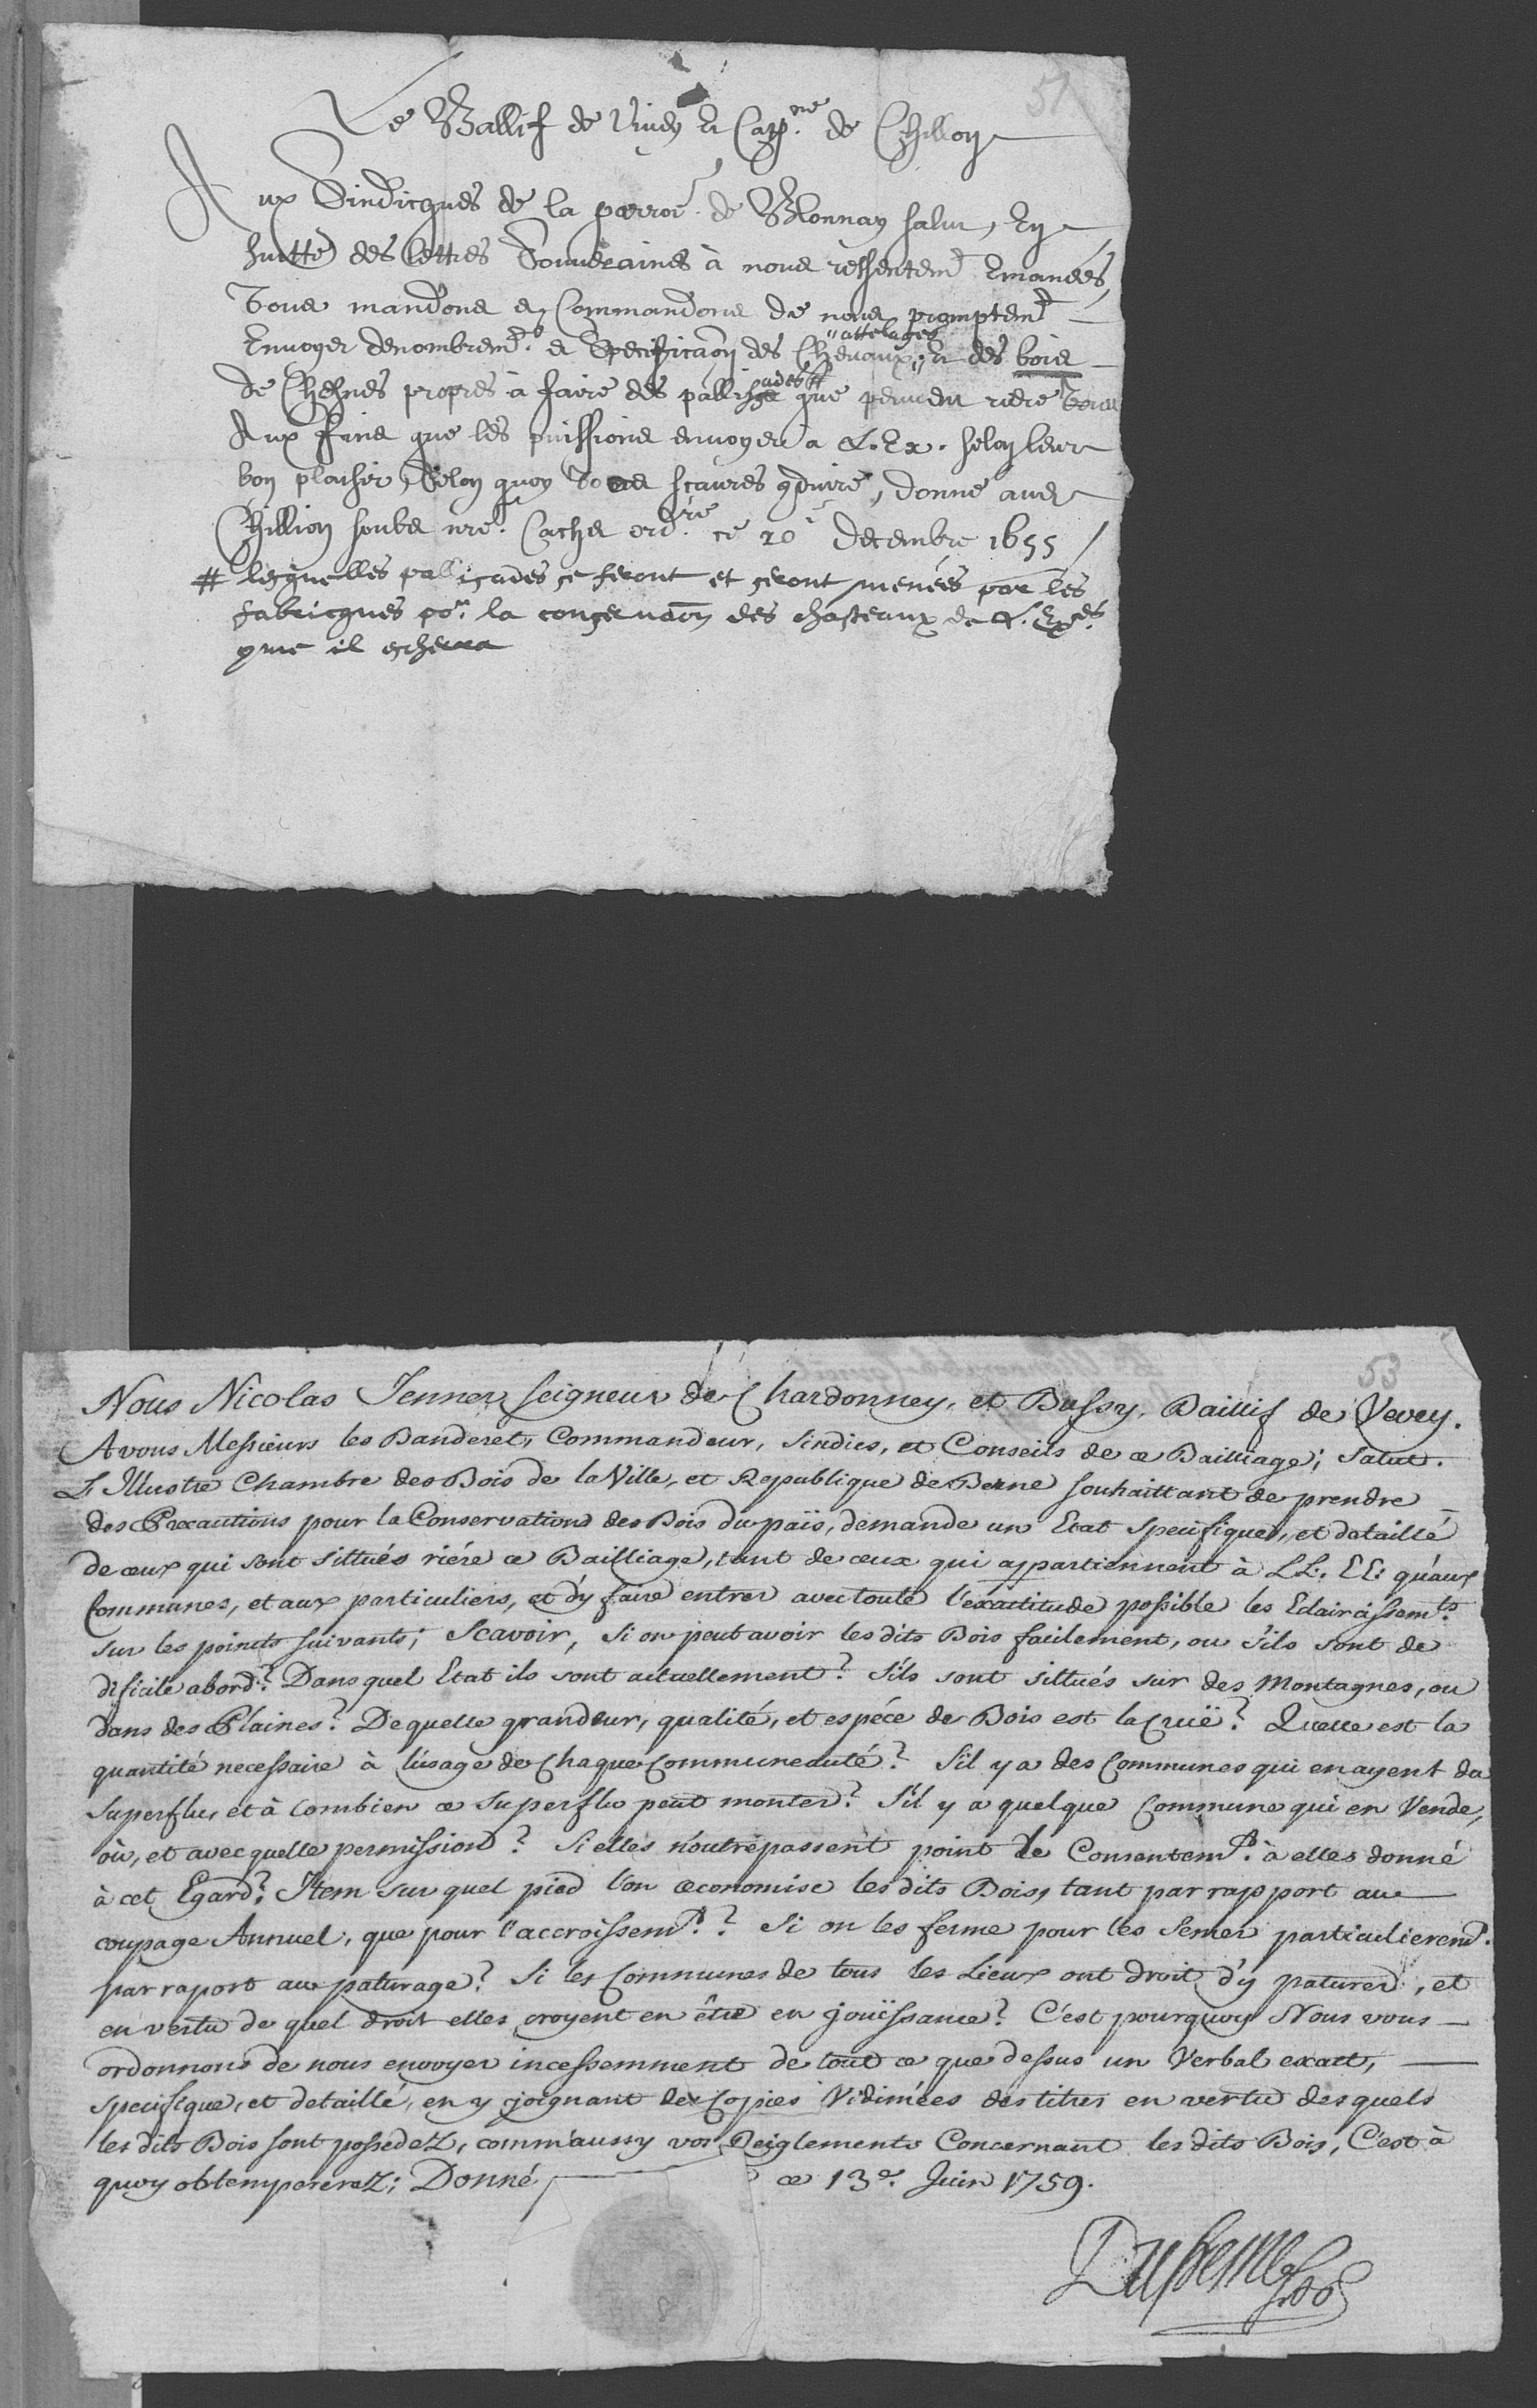 51
Le Ballif de Vivey et Capne. de Chillon
Aux Sindicques de la parroi. de Blonnay salut, En
suitte des lettres Souveraines à nous ressentemt Emanées,
Vous mandons et Commandons de nous promptemt
"attelages
Envoyer denombremt. et Specificaōn des Chevaux," et des bois
ades #
de Chesnes propres à faire des pallis que peuvent riere vous
Aux fins que les puissions envoyer à L. Ex. selon leur
bon plaisir, Selon quoy vous scaures 9duire, donné au dt
Chillion soubs nre. Cachet ordre. ce 20e Decembre 1655 /
# lesquelles palliçades se feront et seront menées par les
fabricques por. la conservaōn des chasteaux de L. Exces.
9me il escherra
53
Nous Nicolas Jenner, seigneur de Chardonney, et Bussy, Baillif de Vevey.
A vous Messieurs les Banderet, Commandeur, Sindics, et Conseils de ce Bailliage; Salut.
L'Illustre Chambre des Bois de la Ville, et Republique de Berne souhaittant de prendre
des Precautions pour la Conservation des Bois du païs, demande un Etat specifique, et detaillé
de ceux qui sont sittués riére ce Bailliage, tant de ceux qui appartiennent à LL. EE: qu'aux
Communes, et aux particuliers, et d'y faire entrer avec toute l'exactitude possible les Eclaircissemts.
sur les points suivants; Scavoir, Si on peut avoir les dits Bois facilement, ou s'ils sont de
dificile abord? Dans quel Etat ils sont actuellement? S'ils sont sittués sur des Montagnes, ou
dans des Plaines? De quelle grandeur, qualité, et espéce de Bois est la Cruë? Quelle est la
quantité necessaire à l'usage de Chaque Communeauté? S'il y a des Communes qui en ayent du
Superflu, et à combien ce superflu peut monter? S'il y a quelque Commune qui en Vende,
où, et avec quelle permission? Si elles n'outrepassent point le Consentemt. à elles donné
à cet Egard? Item sur quel pied l'on œconomise les dits Bois, tant par rapport au
coupage Annuel, que pour l'accroissemt.? Si on les ferme pour les Semer particulieremt.
par raport au paturage? Si les Communes de tous les Lieux ont droit d'y paturer, et
en vertu de quel droit elles croyent en être en jouïssance? C'est pourquoy Nous vous
ordonnons de nous envoyer incessemment de tout ce que dessus un Verbal exact,
specifique, et detaillé, en y joignant des Copies Vidimées des titres en vertu desquels
les dits Bois sont possedez, comm'aussy vos Reiglements Concernant les dits Bois, C'est à
quoy obtempererez; Donné ce 13e. Juin 1759.